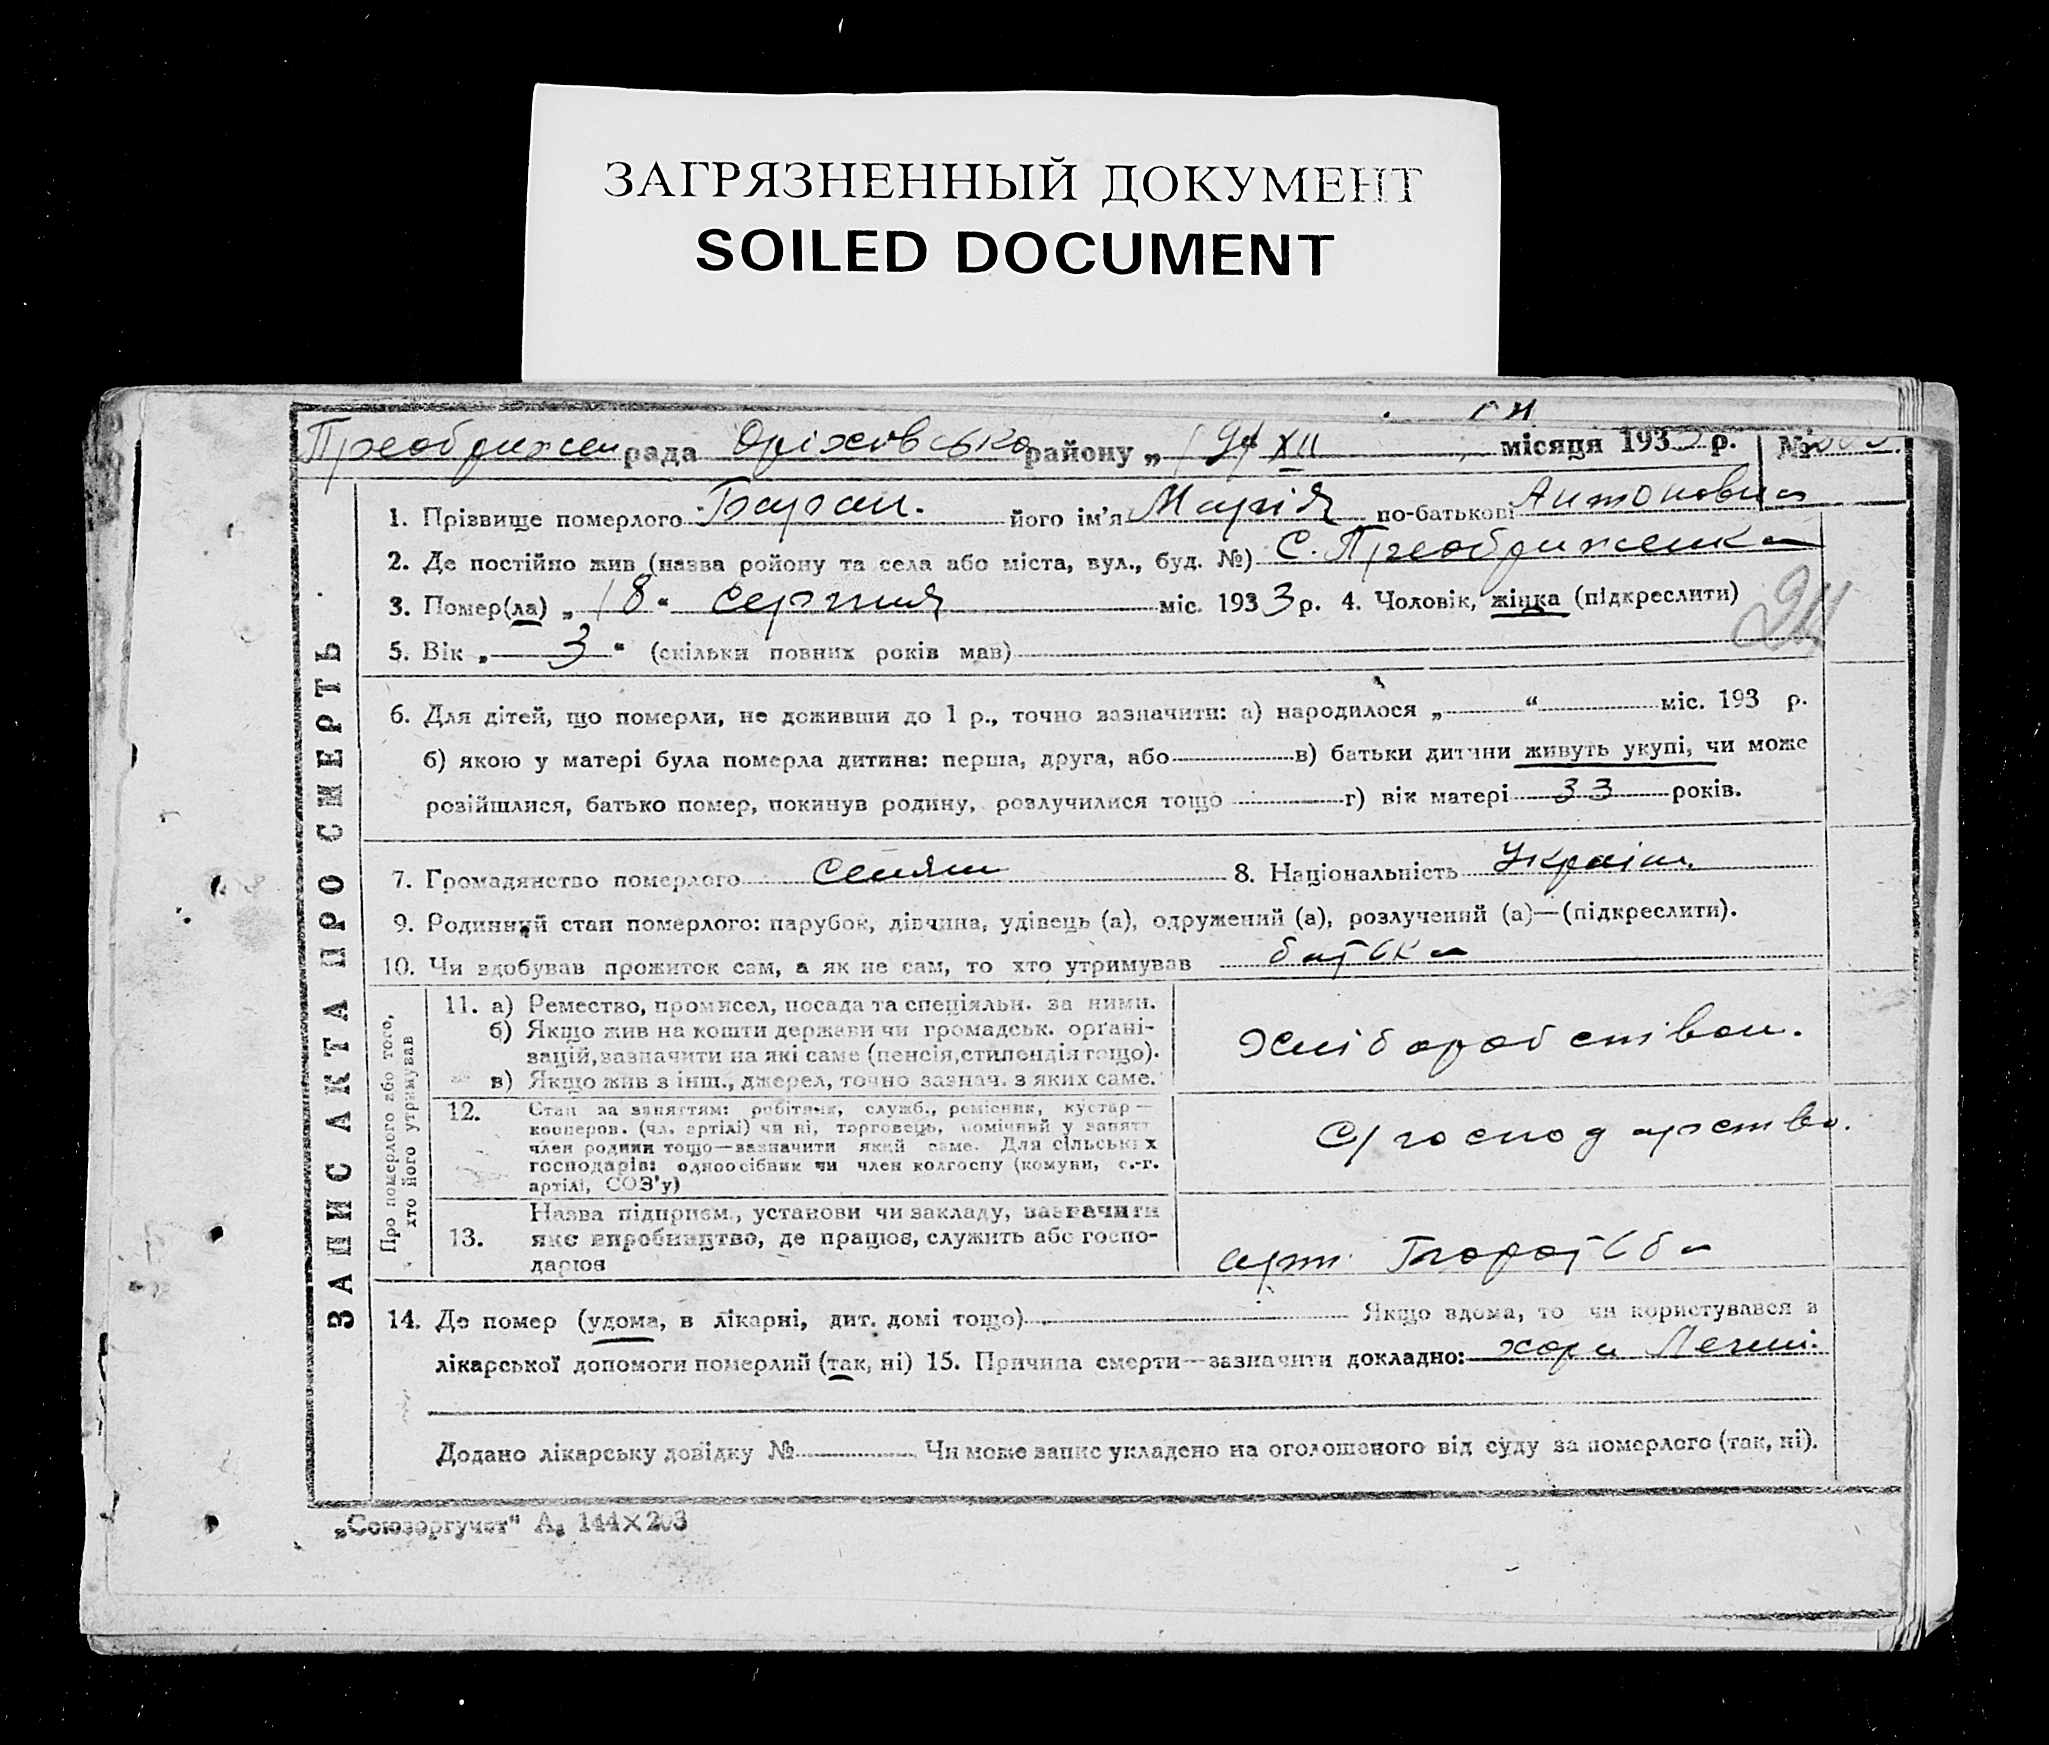 ЗАГРЯЗНЕННЫЙ ДОКУМЕНТ
SOILED DOCUMENT
Преображен рада Оріховсько району „ XII місяця 193 р. №
ЗАПИСАКТА ПРО СМЕРТЬ
1. Прізвище померлого Баран. його ім'я Марія по-батькові Антоновна
2. Де постійно жив (назва ройону та села або міста, вул., буд. №) С. Преображенка
3. Помер(ла) „ 18 “ серпня міс. 1933 р. 4. Чоловік, жінка (підкреслити)
5. Вік „ 3 “ (скільки повних років мав)
6. Для дітей, що померли, не доживши до 1 р., точно зазначити: а) народилося „ “ міс. 193 р.
б) якою у матері була померла дитина: перша, друга, або в) батьки дитини живуть укупі, чи може
розійшлися, батько помер, покинув родину, розлучилися тощо г) вік матері 33 років.
7. Громадянство померлого селян 8. Національність Україн.
9. Родинний стан померлого: парубок, дівчина, удівець (а), одружений (а), розлучений (а)—(підкреслити).
10. Чи здобував прожиток сам, а як не сам, то хто утримував батька
Про померлого або того, хто його утримував
11. а) Ремество, промисел, посада та спеціяльн. за ними.
б) Якщо жив на кошти держави чи громадськ. орґані-
зацій, зазначити на які саме (пенсія, стипендія тощо).
в) Якщо жив з інш., джерел, точно зазнач. з яких саме.
хліборобством.
12. Стан за заняттям: робітник, служб., ремісник, кустар—
кооперов. (чл. артілі) чи ні, торговець, помічний у занятт
член родини тощо—зазначити який саме. Для сільських
господарів: одноосібник чи член колгоспу (комуни, с.-г.
артілі, СОЗ'у)
С/господарство.
13. Назва підприєм., установи чи закладу, зазначити
яке виробництво, де працює, служить або госпо-
дарює
арт. Боротьба
14. Де помер (удома, в лікарні, дит. домі тощо) Якщо вдома, то чи користувався з
лікарської допомоги померлий (так, ні) 15. Причина смерти—зазначити докладно: хори Легені.
Додано лікарську довідку № Чи може запис укладено на оголошеного від суду за померлого (так, ні).
„Союзоргучет" А. 144×203